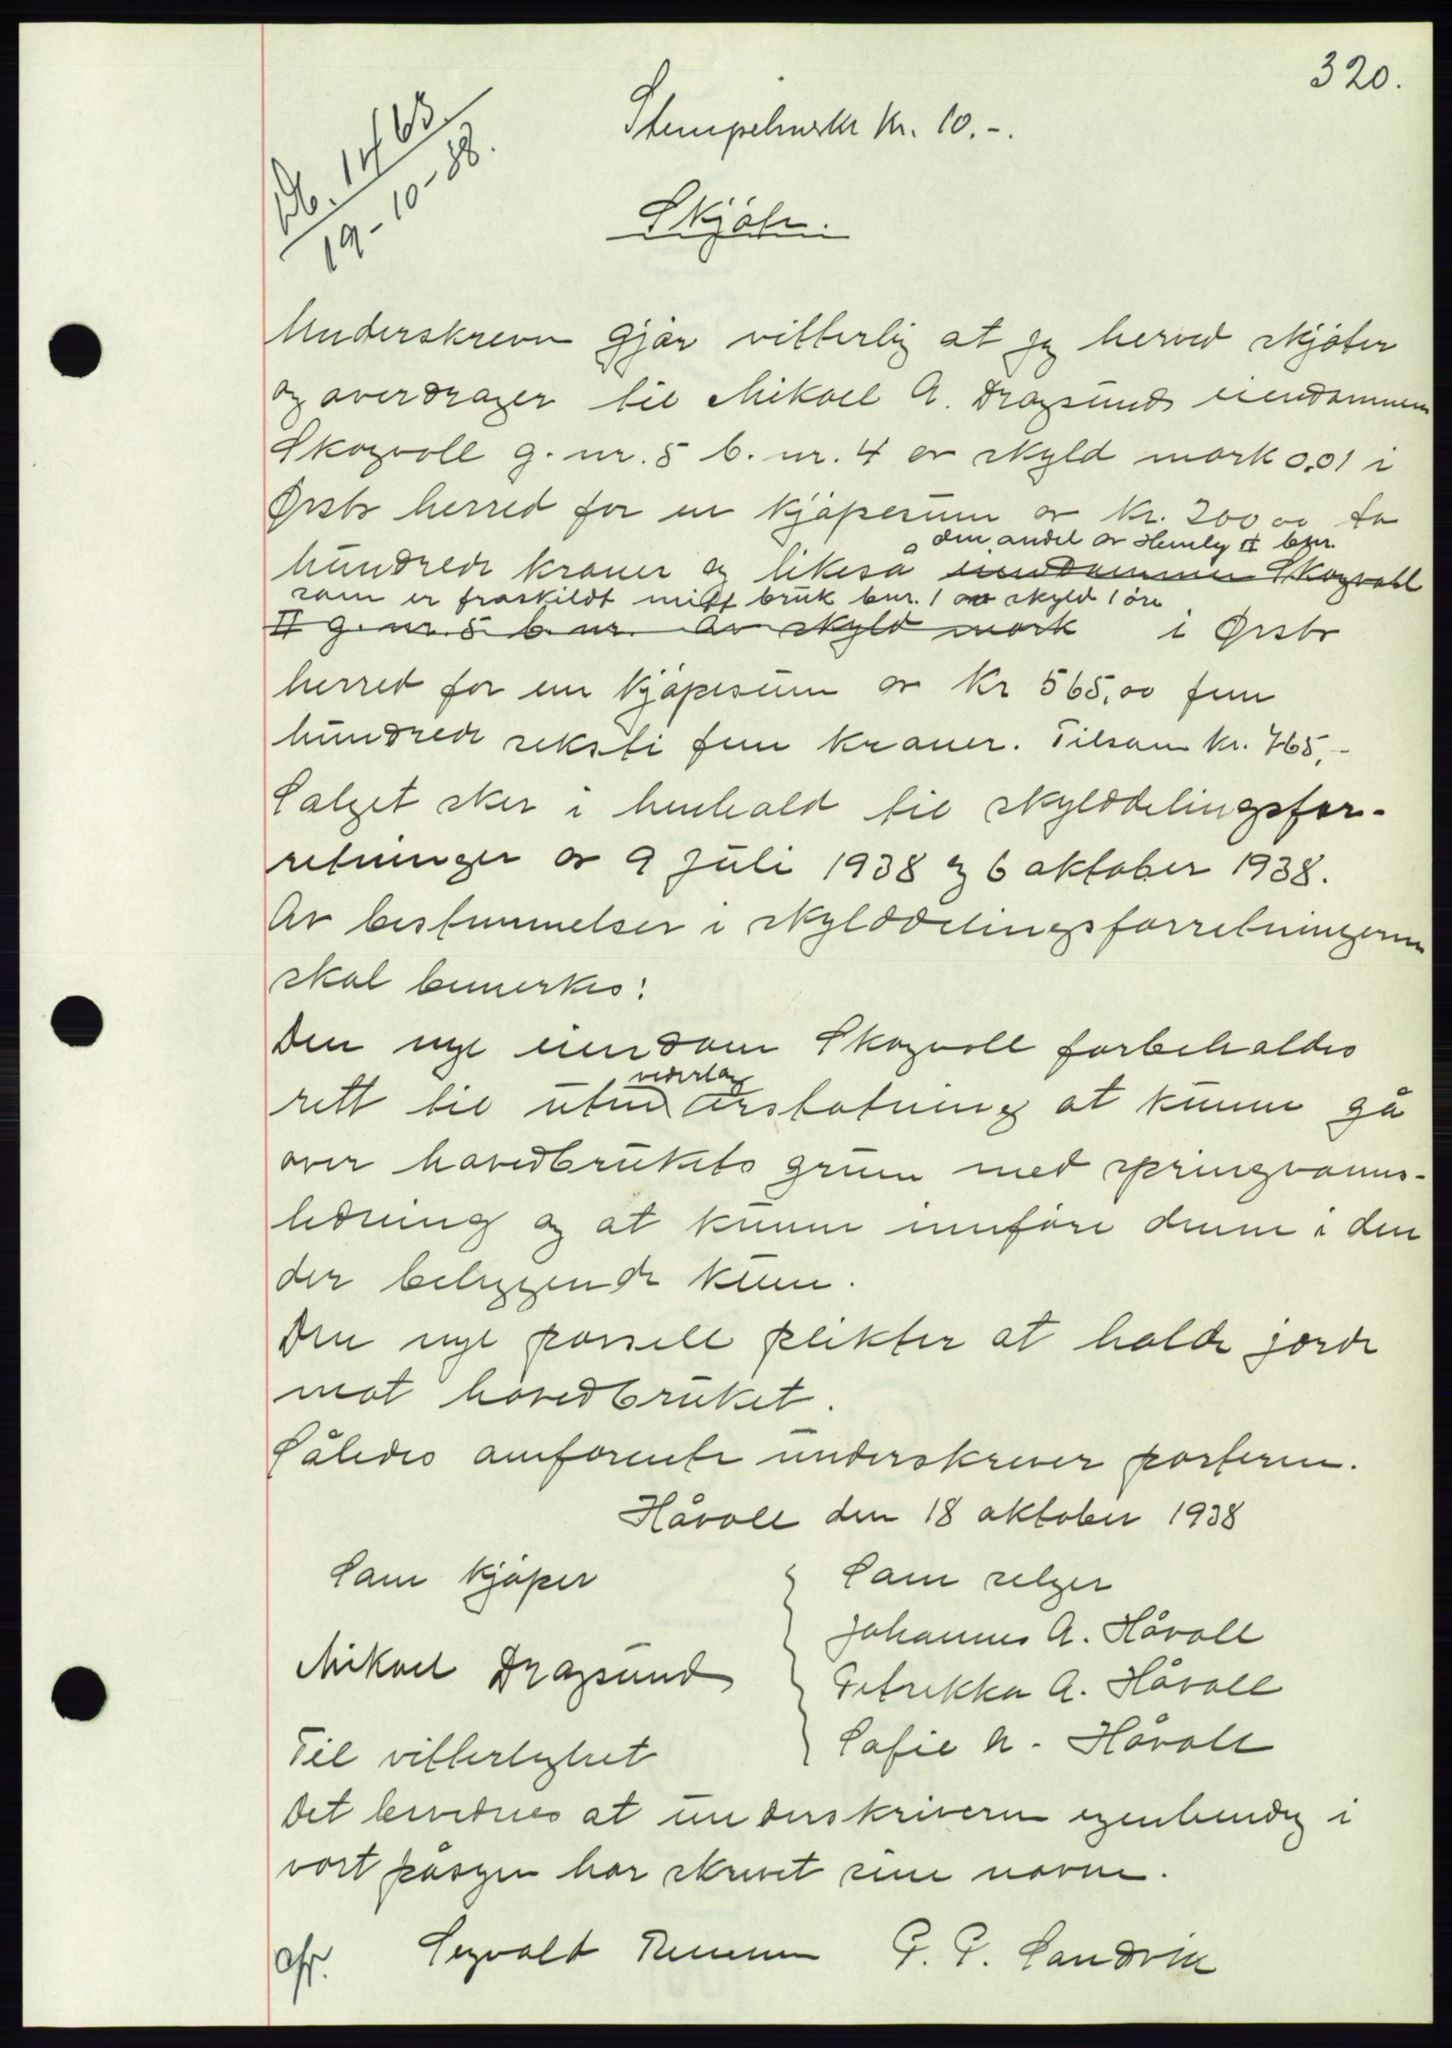 320.
Stempelmerke kr. 10.-.
Db. 1463
19-10-38.
Skjøte.
Underskrevne gjør vitterlig at jeg herved skjøter
og overdrager til Mikael A. Dragsund eiendommen
Skogvoll g. nr. 5 b. nr. 4 av skyld mark 0,01 i
Ørsta herred for en kjøpesum av kr. 200 00 to
den andel av Heimly II bnr.
hundrede kroner og likeså eiendommen Skogvoll
som er fraskildt mitt bruk bnr. 1 av skyld 1 øre
II g. nr. 5 b. nr. av skyld mark i Ørsta
herred for en kjøpesum av kr 565,00 fem
hundrede seksti fem kroner. Tilsam kr. 765,-
Salget sker i henhold til skylddelingsfor-
retninger av 9 juli 1938 og 6 oktober 1938.
Av bestemmelser i skylddelingsforretningerne
skal bemerkes:
Den nye eiendom Skogvoll forbeholdes
vederlag
rett til uten erstatning at kunne gå
over hovedbrukets grunn med springvanns-
ledning og at kunne innføre denne i den
der beliggende kum.
Den nye parsell plikter at holde gjerde
mot hovedbruket.
Således omforente underskrever parterne.
Håvoll den 18 oktober 1938
Som kjøper
Som selger
Johannes A. Håvoll
Mikael Dragsund
Petrikka A. Håvoll
Sofie N. Håvoll
Til vitterlighet
Det bevidnes at underskriverne egenhendig i
vort påsyn har skrevet sine navne.
Sigvald P. P. Sandvik